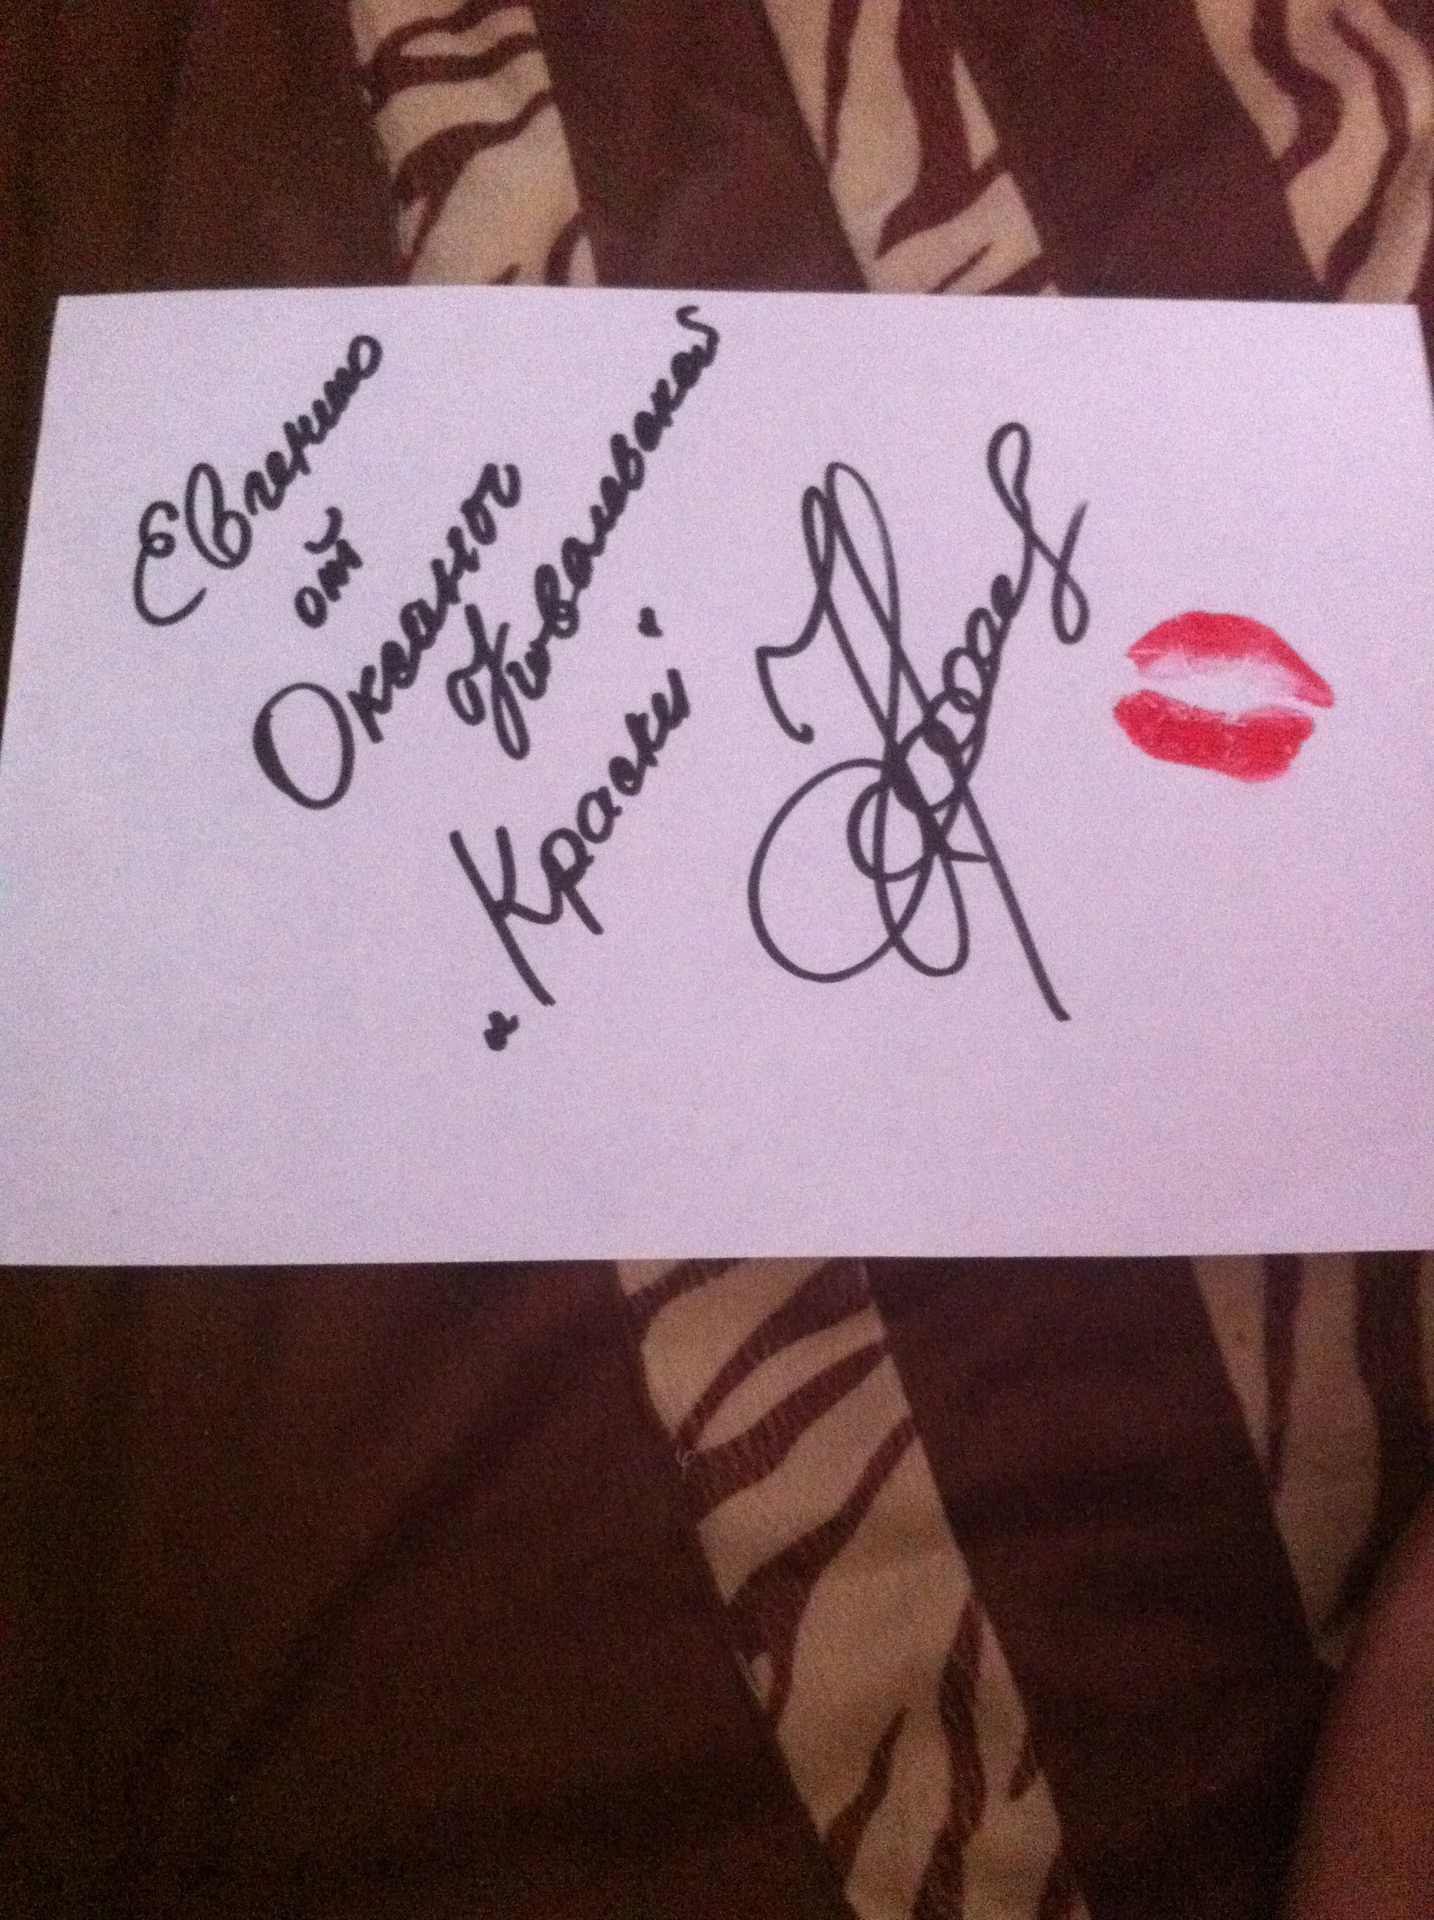 Евгению
от
Оксаны
Ковалевской
"Краски"